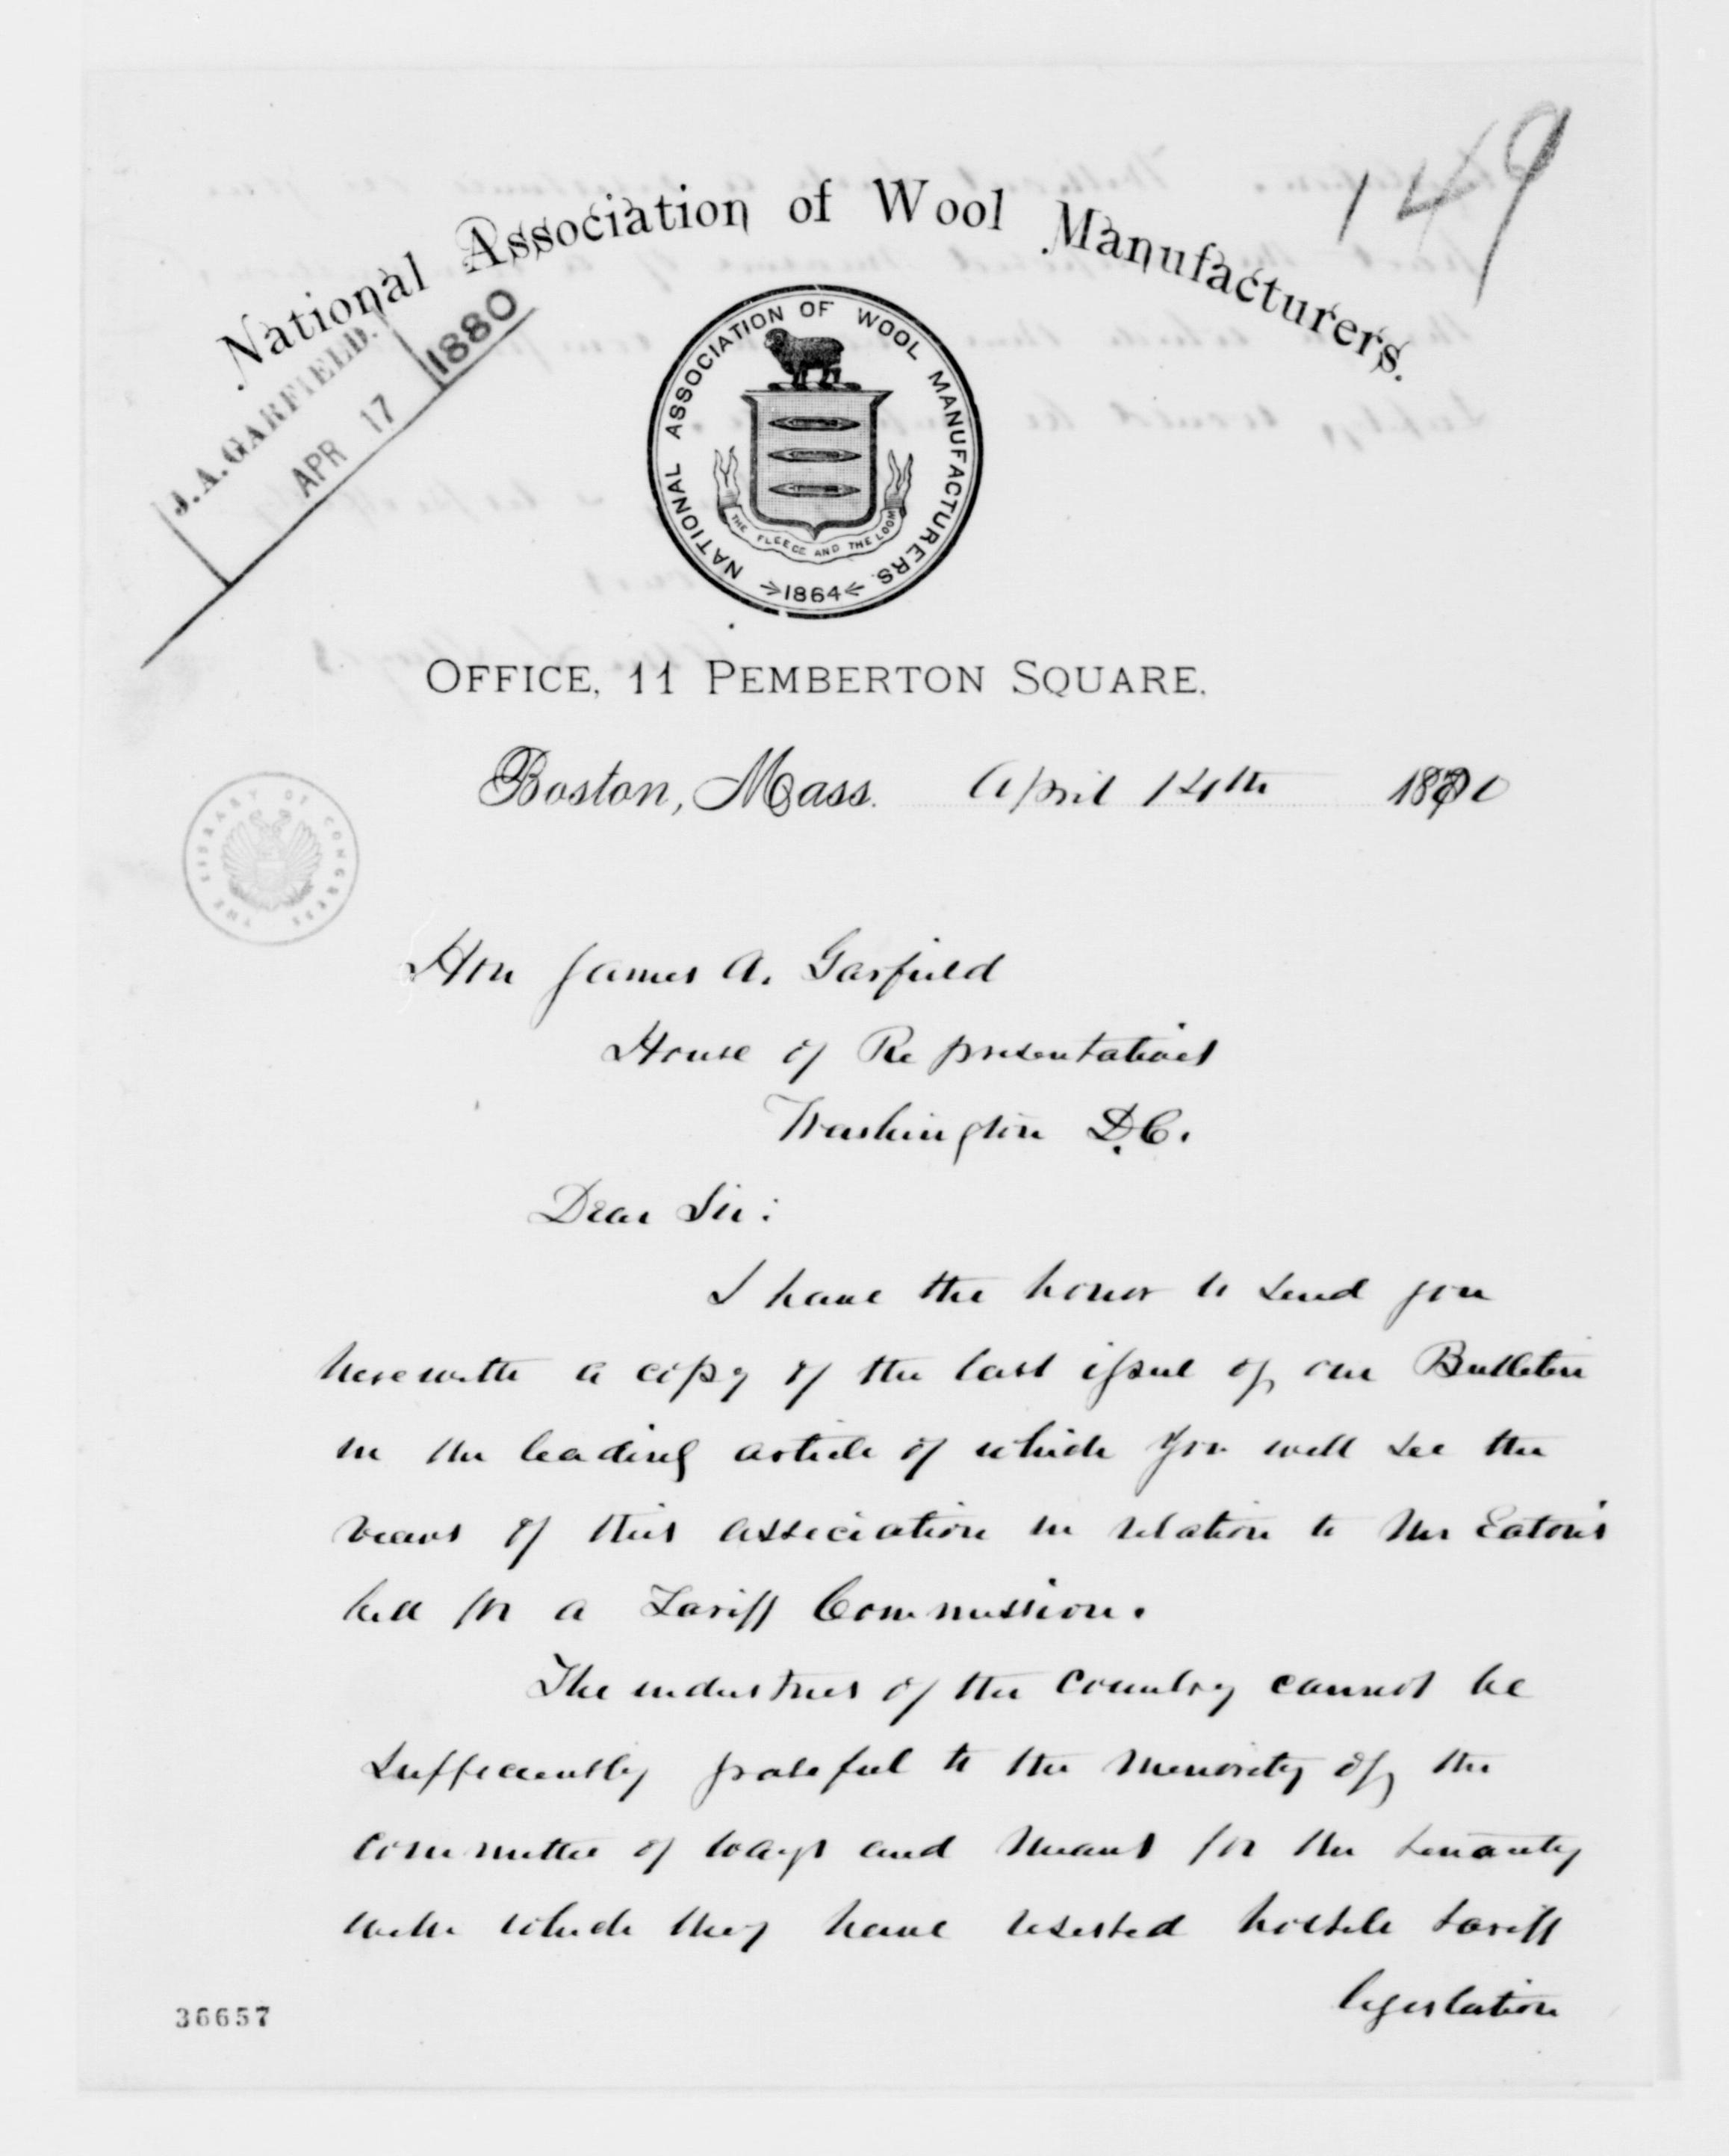 149
National Association of Wool Manufacturers.
J. A. GARFIELD.
APR 17 1880
NATIONAL ASSOCIATION OF WOOL MANUFACTURERS.
THE FLEECE AND THE LOOM
1864
OFFICE, 11 PEMBERTON SQUARE.
Boston, Mass. April 14th 1880
THE LIBRARY OF CONGRESS
Hon James A. Garfield
House of Representatives
Washington D.C.
Dear Sir:
I have the honor to send you
herewith a copy of the last issue of our Bulletin
in the leading article of which you will see the
views of this association in relation to Mr Eaton's
bill for a Tariff Commission.
The industries of the country cannot be
sufficiently grateful to the minority of the
committee of ways and means for the tenacity
with which they have resisted hostile tariff
legislation
36657